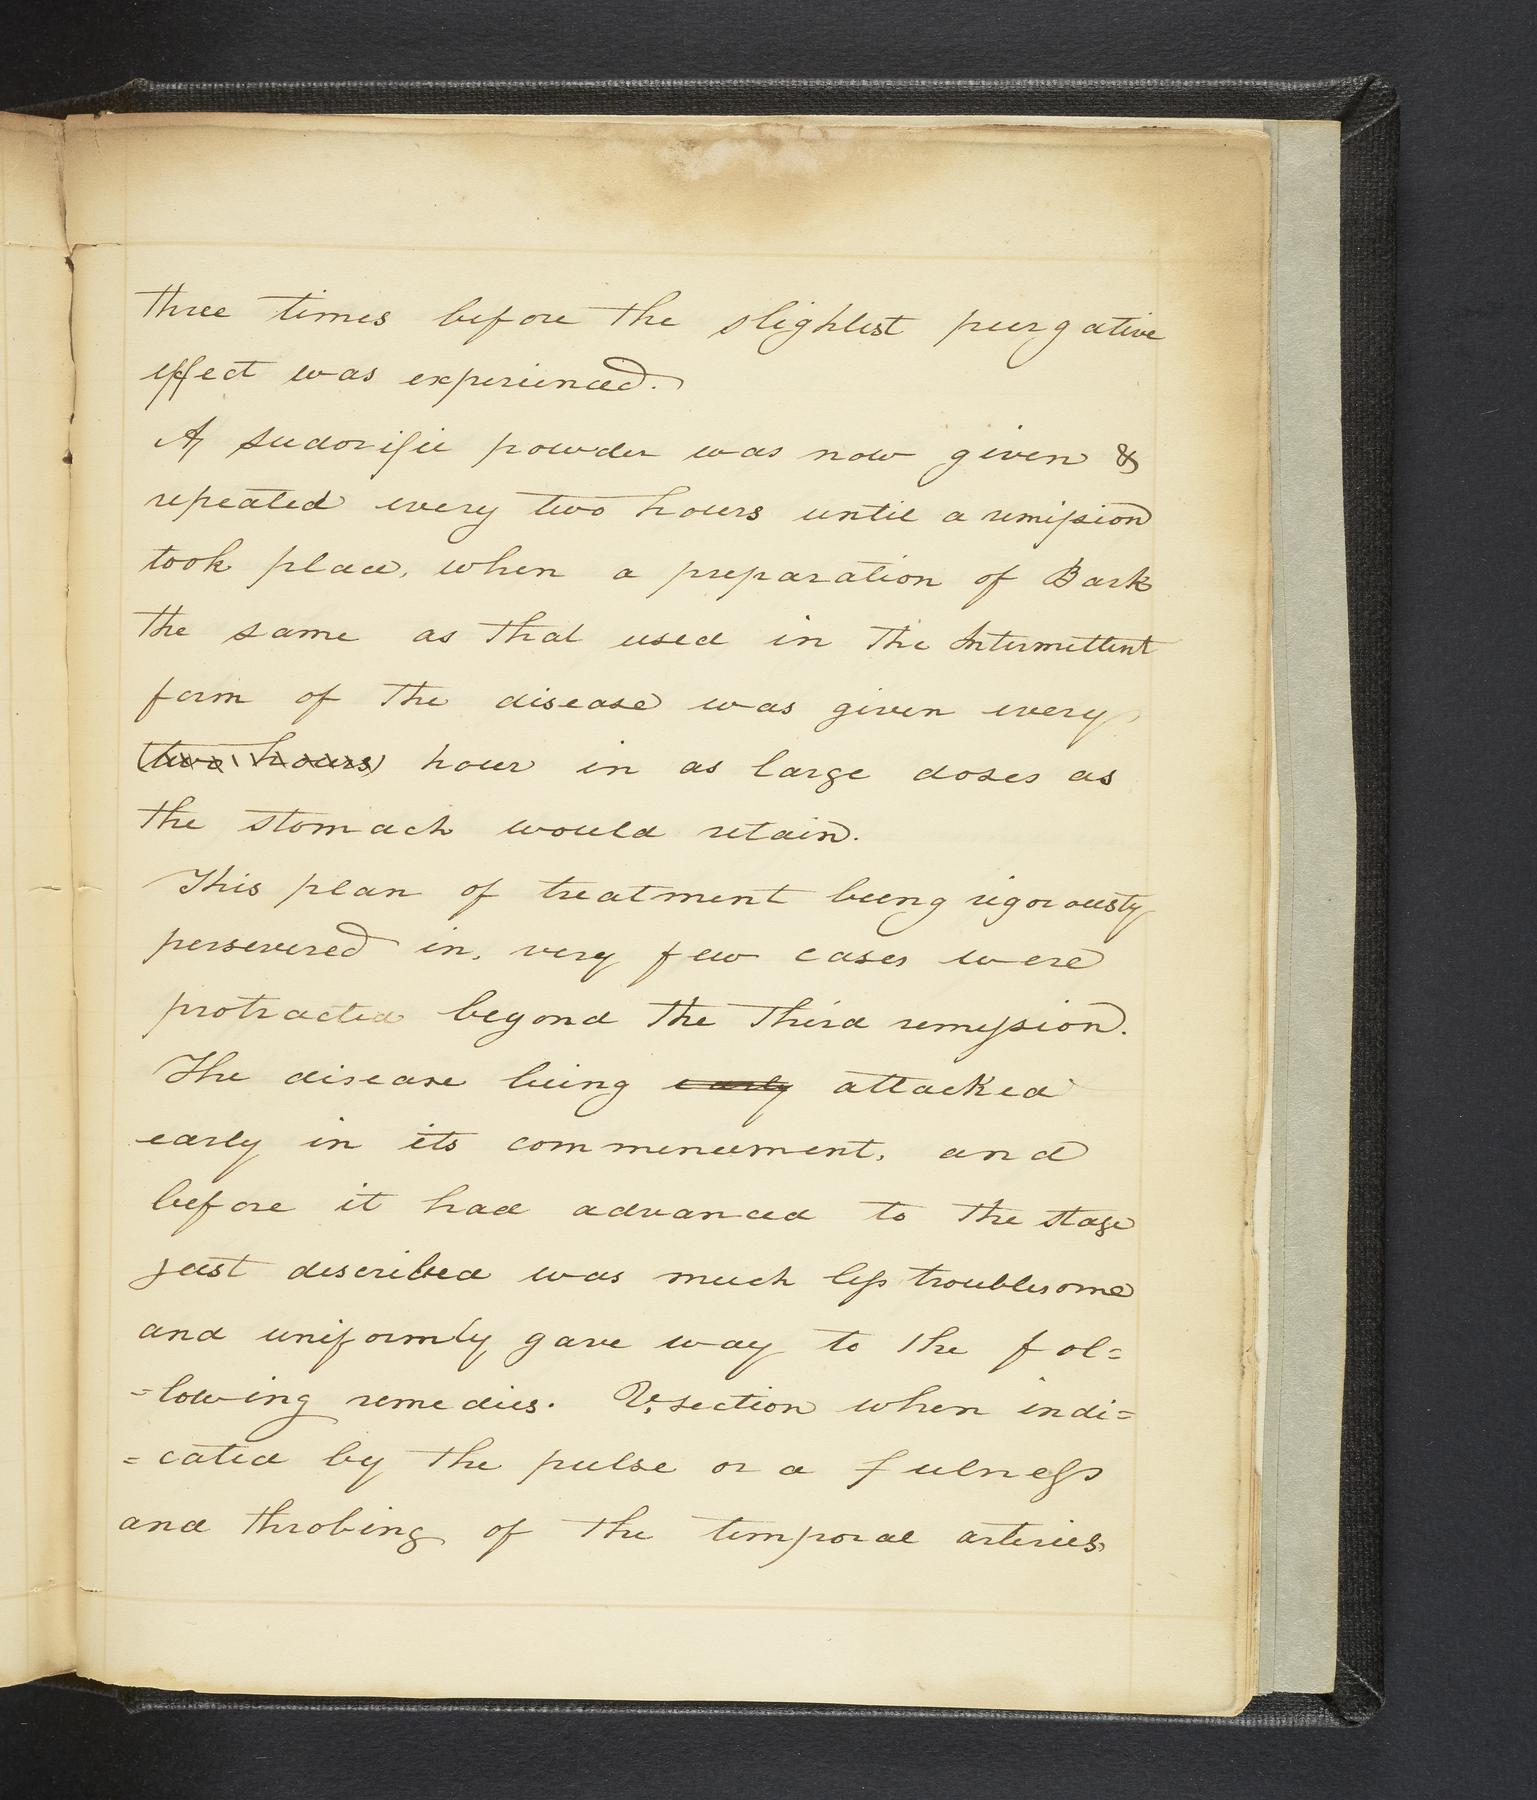 three times before the slightest purgative
effect was experienced.
A sudorific powder was now given &
repeated every two hours until a remission
took place, when a preparation of Bark
the same as that used in the Intermittent
form of the disease was given every
(two hours) hour in as large doses as
the stomach would retain.
This plan of treatment being rigorously
persevered in, very few cases were
protracted beyond the third remission.
The disease being early attacked
early in its commencement, and
before it had advanced to the stage
just described was much less troublesome
and uniformly gave way to the fol=
=lowing remedies. V. section when indi=
=cated by the pulse or a fulness
and throbing of the temporal arteries